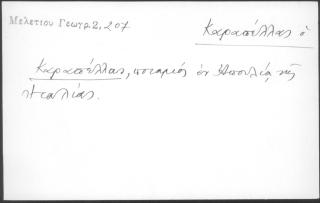 Μελετίου Γεωγρ. 2, 207
Καραπέλλας ὁ
Καραπέλλας, ποταμὸς ἐν Ἀπουλίᾳ τῆς
Ἰταλίας.